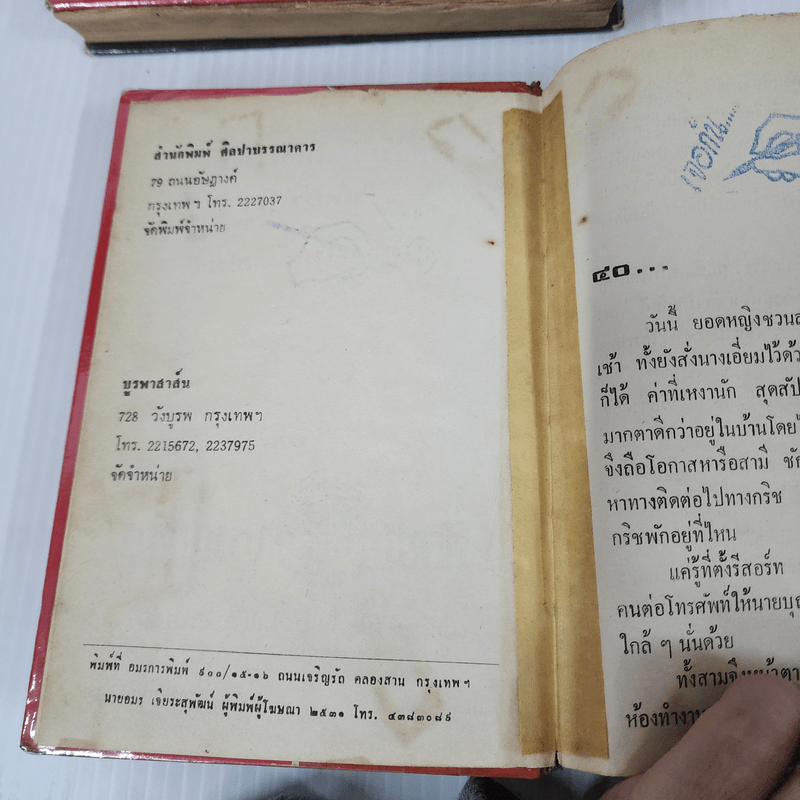 สำนักพิมพ์ ศิลปาบรรณาคาร
79 ถนนอัษฎางค์
กรุงเทพฯ โทร. 2227037
จัดพิมพ์จำหน่าย
บูรพาสาส์น
728 วังบูรพ กรุงเทพฯ
โทร. 2215672, 2237975
จัดจำหน่าย
พิมพ์ที่ อมรการพิมพ์ ๙๐๐/๑๕-๑๖ ถนนเจริญรัถ คลองสาน กรุงเทพฯ
นายอมร เจียระสุพัฒน์ ผู้พิมพ์ผู้โฆษณา ๒๕๓๑ โทร. ๔๓๘๓๐๘๙
เจอกัน...
๔๐...
วันนี้ ยอดหญิงชวน
เช้า ทั้งยังสั่งนางเอี่ยมไว้
ก็ได้ ค่าที่เหงานัก
มากตาดีกว่าอยู่ในบ้านโดย
จึงถือโอกาสหารือสามี
หาทางติดต่อไปทางกริช
กริชพักอยู่ที่ไหน
แค่รู้ที่ตั้งรีสอร์ท
คนต่อโทรศัพท์ให้นาย
ใกล้ ๆ นั่นด้วย
ทั้งสามจึง
ห้องทำงาน